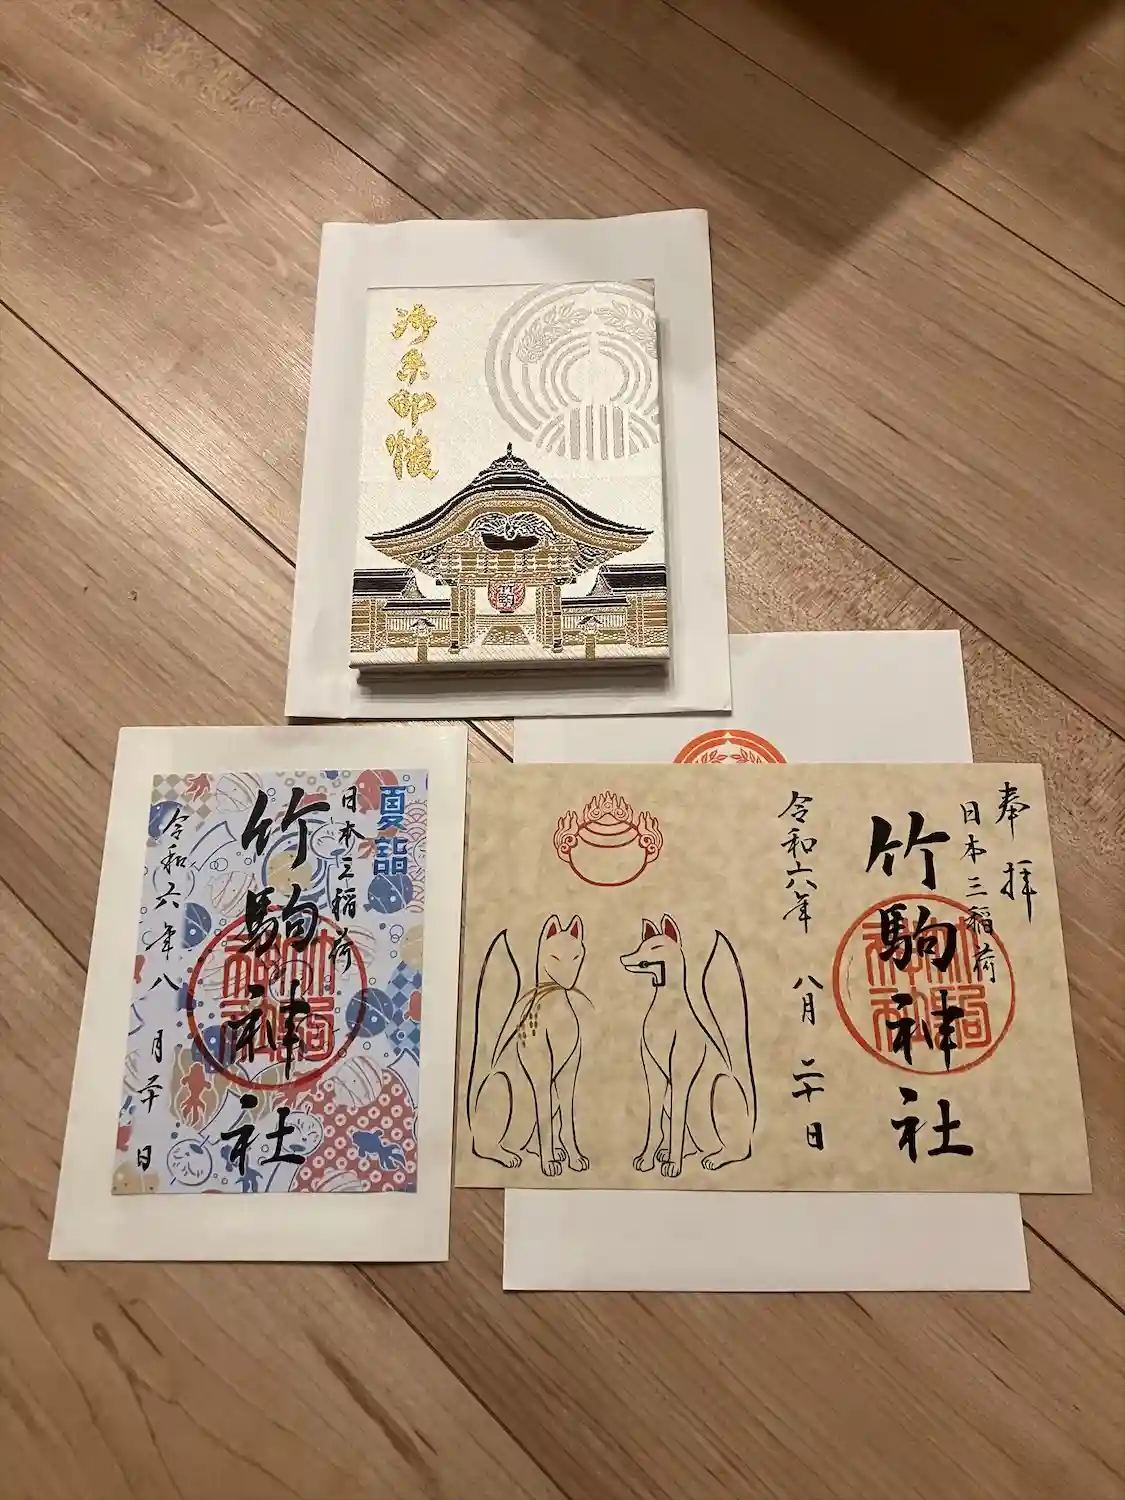 御朱印帳
夏詣
日本三稲荷
竹駒神社
令和六年八月二十日
奉拝
日本三稲荷
竹駒神社
令和六年八月二十日